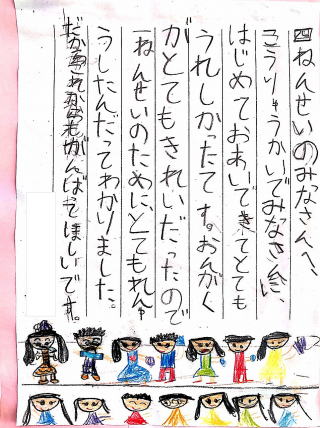 四ねんせいのみなさんへ、
こうりゅうかいでみなさんに、
はじめておあいできてとても
うれしかったてす。おんがく
がとてもきれいだったので
一ねんせいのためにとてもれんしゅ
うしたんだってわかりました。
これからもがんばってほしいです。